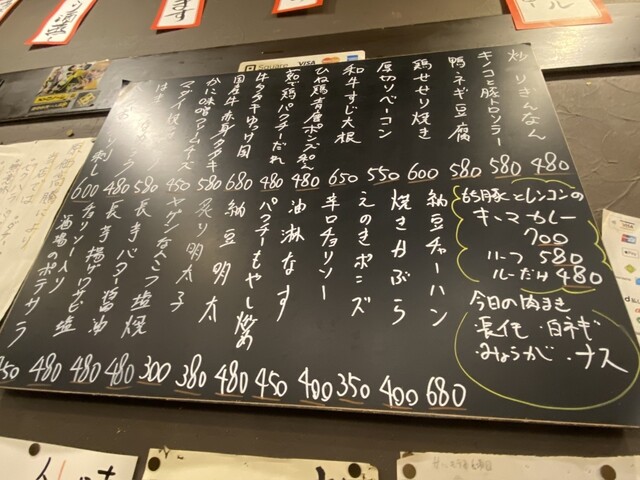 炒りぎんなん 480
キノコと豚トロソテー 580
鴨ネギ豆腐 580
鶏せせり焼き 600
厚切りベーコン 550
和牛すじ大根 650
ひね鶏 ポンズ和え 480
茹で鶏パクチーだれ 480
牛タタキユッケ風 680
国産牛赤身タタキ 580
かに味噌クリームチーズ 450
マダイ 580
480
刺し 600
納豆チャーハン 680
焼きかぶら 400
えのきポンズ 350
辛口チョリソー 400
油淋なす 450
パクチーもやし炒め 480
納豆明太 380
炙り明太子 300
ヤゲンなんこつ塩焼 480
長芋バター醤油 480
長芋揚げワサビ塩 480
チョリソー入り
酒場のポテサラ
450
65豚とレンコンの
キーマカレー
700
ハーフ 580
ルーだけ 480
今日の肉まき
・長イモ ・白ネギ
・みょうが ・ナス
Square
VISA